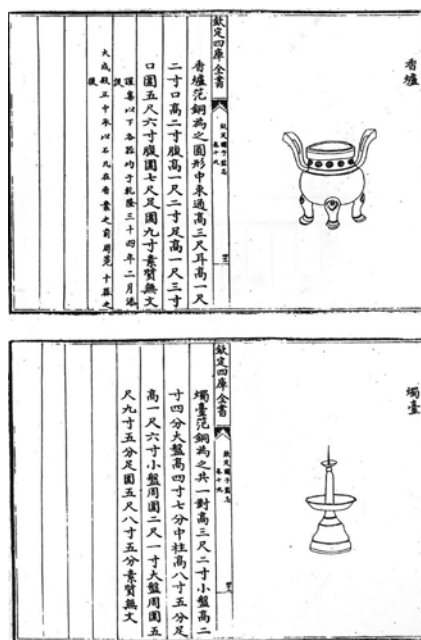 香爐
欽定四庫全書
欽定國子監志
卷十九
香爐范銅為之圓形中束通高三尺耳高一尺
二寸口高二寸腹高一尺二寸足高一尺三寸
口圍五尺六寸腹圍七尺足圍九寸素質無文
謹案以下各器均于乾隆三十四年二月添
設
大成殿正中承以石几在香案之前周范十器之
後
燭臺
欽定四庫全書
欽定國子監志
卷十九
燭臺范銅為之共一對高三尺二寸小盤高二
寸四分大盤高四寸七分中柱高八寸五分足
高一尺六寸小盤周圍二尺一寸大盤周圍五
尺九寸五分足圍五尺八寸五分素質無文